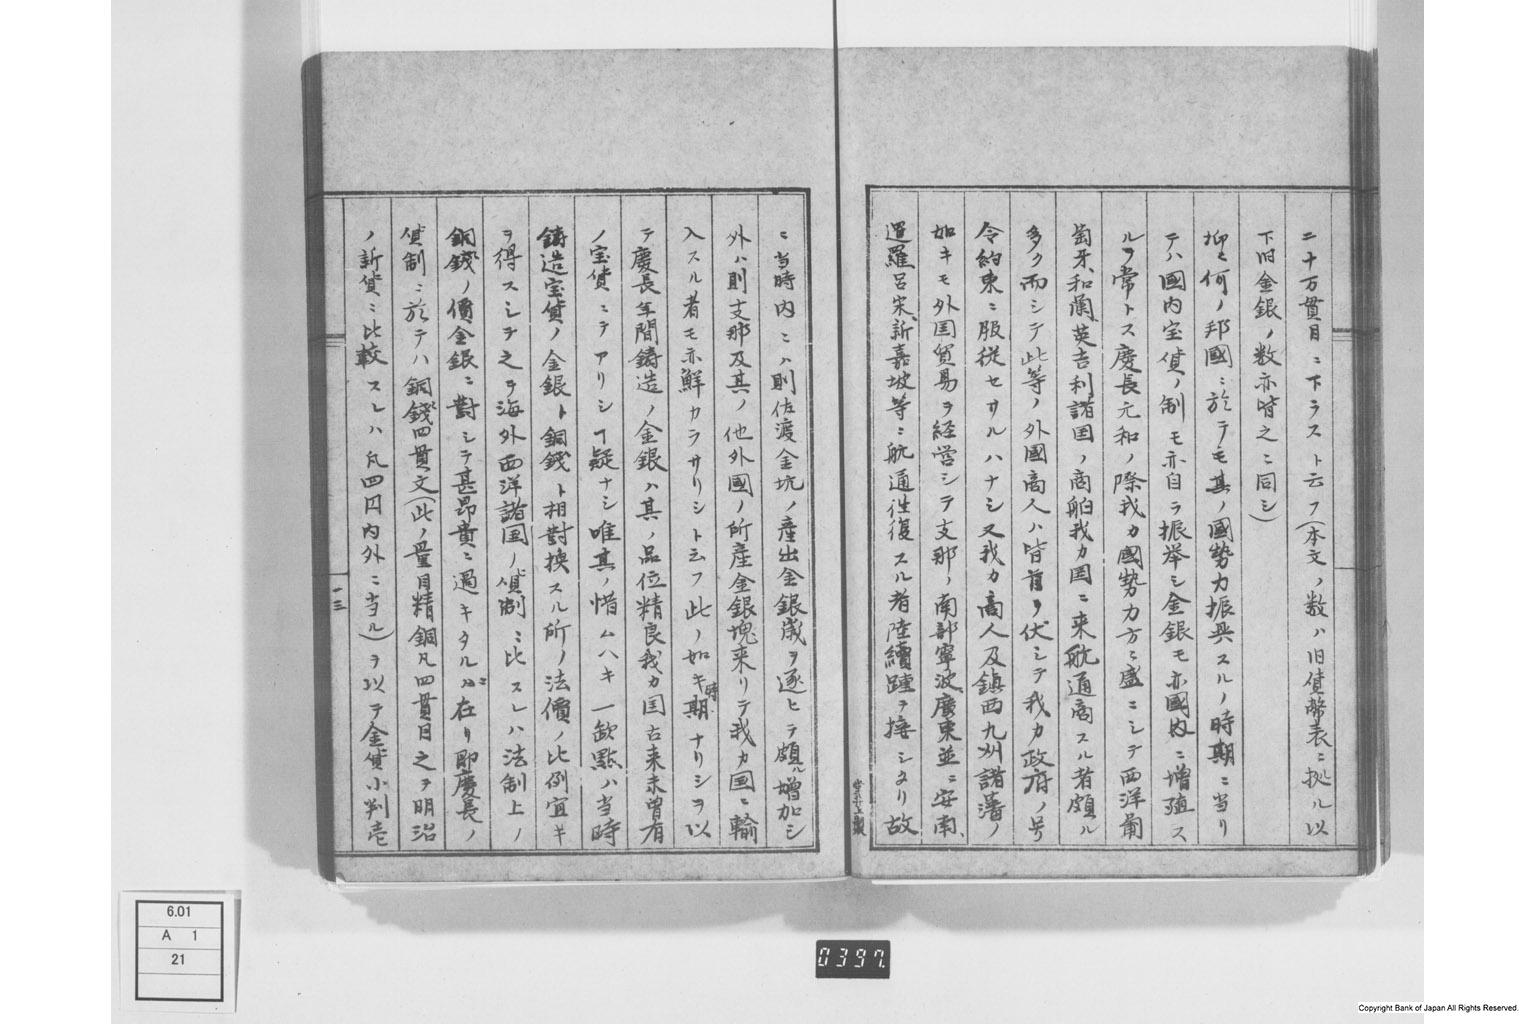 二十万貫目ニ下ラスト云フ(本文ノ数ハ旧貨幣表ニ拠ル以
下旧金銀ノ数亦皆之ニ同シ)
抑モ何ノ邦國ニ於テモ其ノ國勢力振興スルノ時期ニ当リ
テハ國内宝貨ノ制モ亦自ラ振挙シ金銀モ亦國内ニ増殖ス
ルヲ常トス慶長元和ノ際我カ國勢力方ニ盛ニシテ西洋葡
萄牙、和蘭、英吉利諸国ノ商舶我カ国ニ来航通商スル者頗ル
多ク而シテ此等ノ外國商人ハ皆首ヲ伏シテ我カ政府ノ号
令約束ニ服従セサルハナシ又我カ商人及鎮西九州諸藩ノ
如キモ外国貿易ヲ経営シテ支那ノ南部寧波、廣東並ニ安南、
暹羅、呂宋、新嘉坡等ニ航通往復スル者陸續踵ヲ接シタリ故
ニ当時内ニハ則佐渡金坑ノ産出金銀歳ヲ逐ヒテ頗ル増加シ
外ハ則支那及其ノ他外國ノ所産金銀塊来リテ我カ国ニ輸
入スル者モ亦鮮カラサリシト云フ此ノ如キ時期ナリシヲ以
テ慶長年間鋳造ノ金銀ハ其ノ品位精良我カ国古来未曽有
ノ宝貨ニテアリシヿ疑ナシ唯其ノ惜ムヘキ一欽點ハ当時
鋳造宝貨ノ金銀ト銅錢ト相對換スル所ノ法價ノ比例宜キ
ヲ得スシテ之ヲ海外西洋諸国ノ貨制ニ比スレハ法制上ノ
銅錢ノ價金銀ニ對シテ甚昂貴ニ過キタルニ在リ即慶長ノ
貨制ニ於テハ銅錢四貫文(此ノ量目精銅凡四貫目之ヲ明治
ノ新貨ニ比較スレハ凡四円内外ニ当ル)ヲ以テ金貨小判壱
一三
6.01
A 1
21
0397.
Copyright Bank of Japan All Rights Reserved.